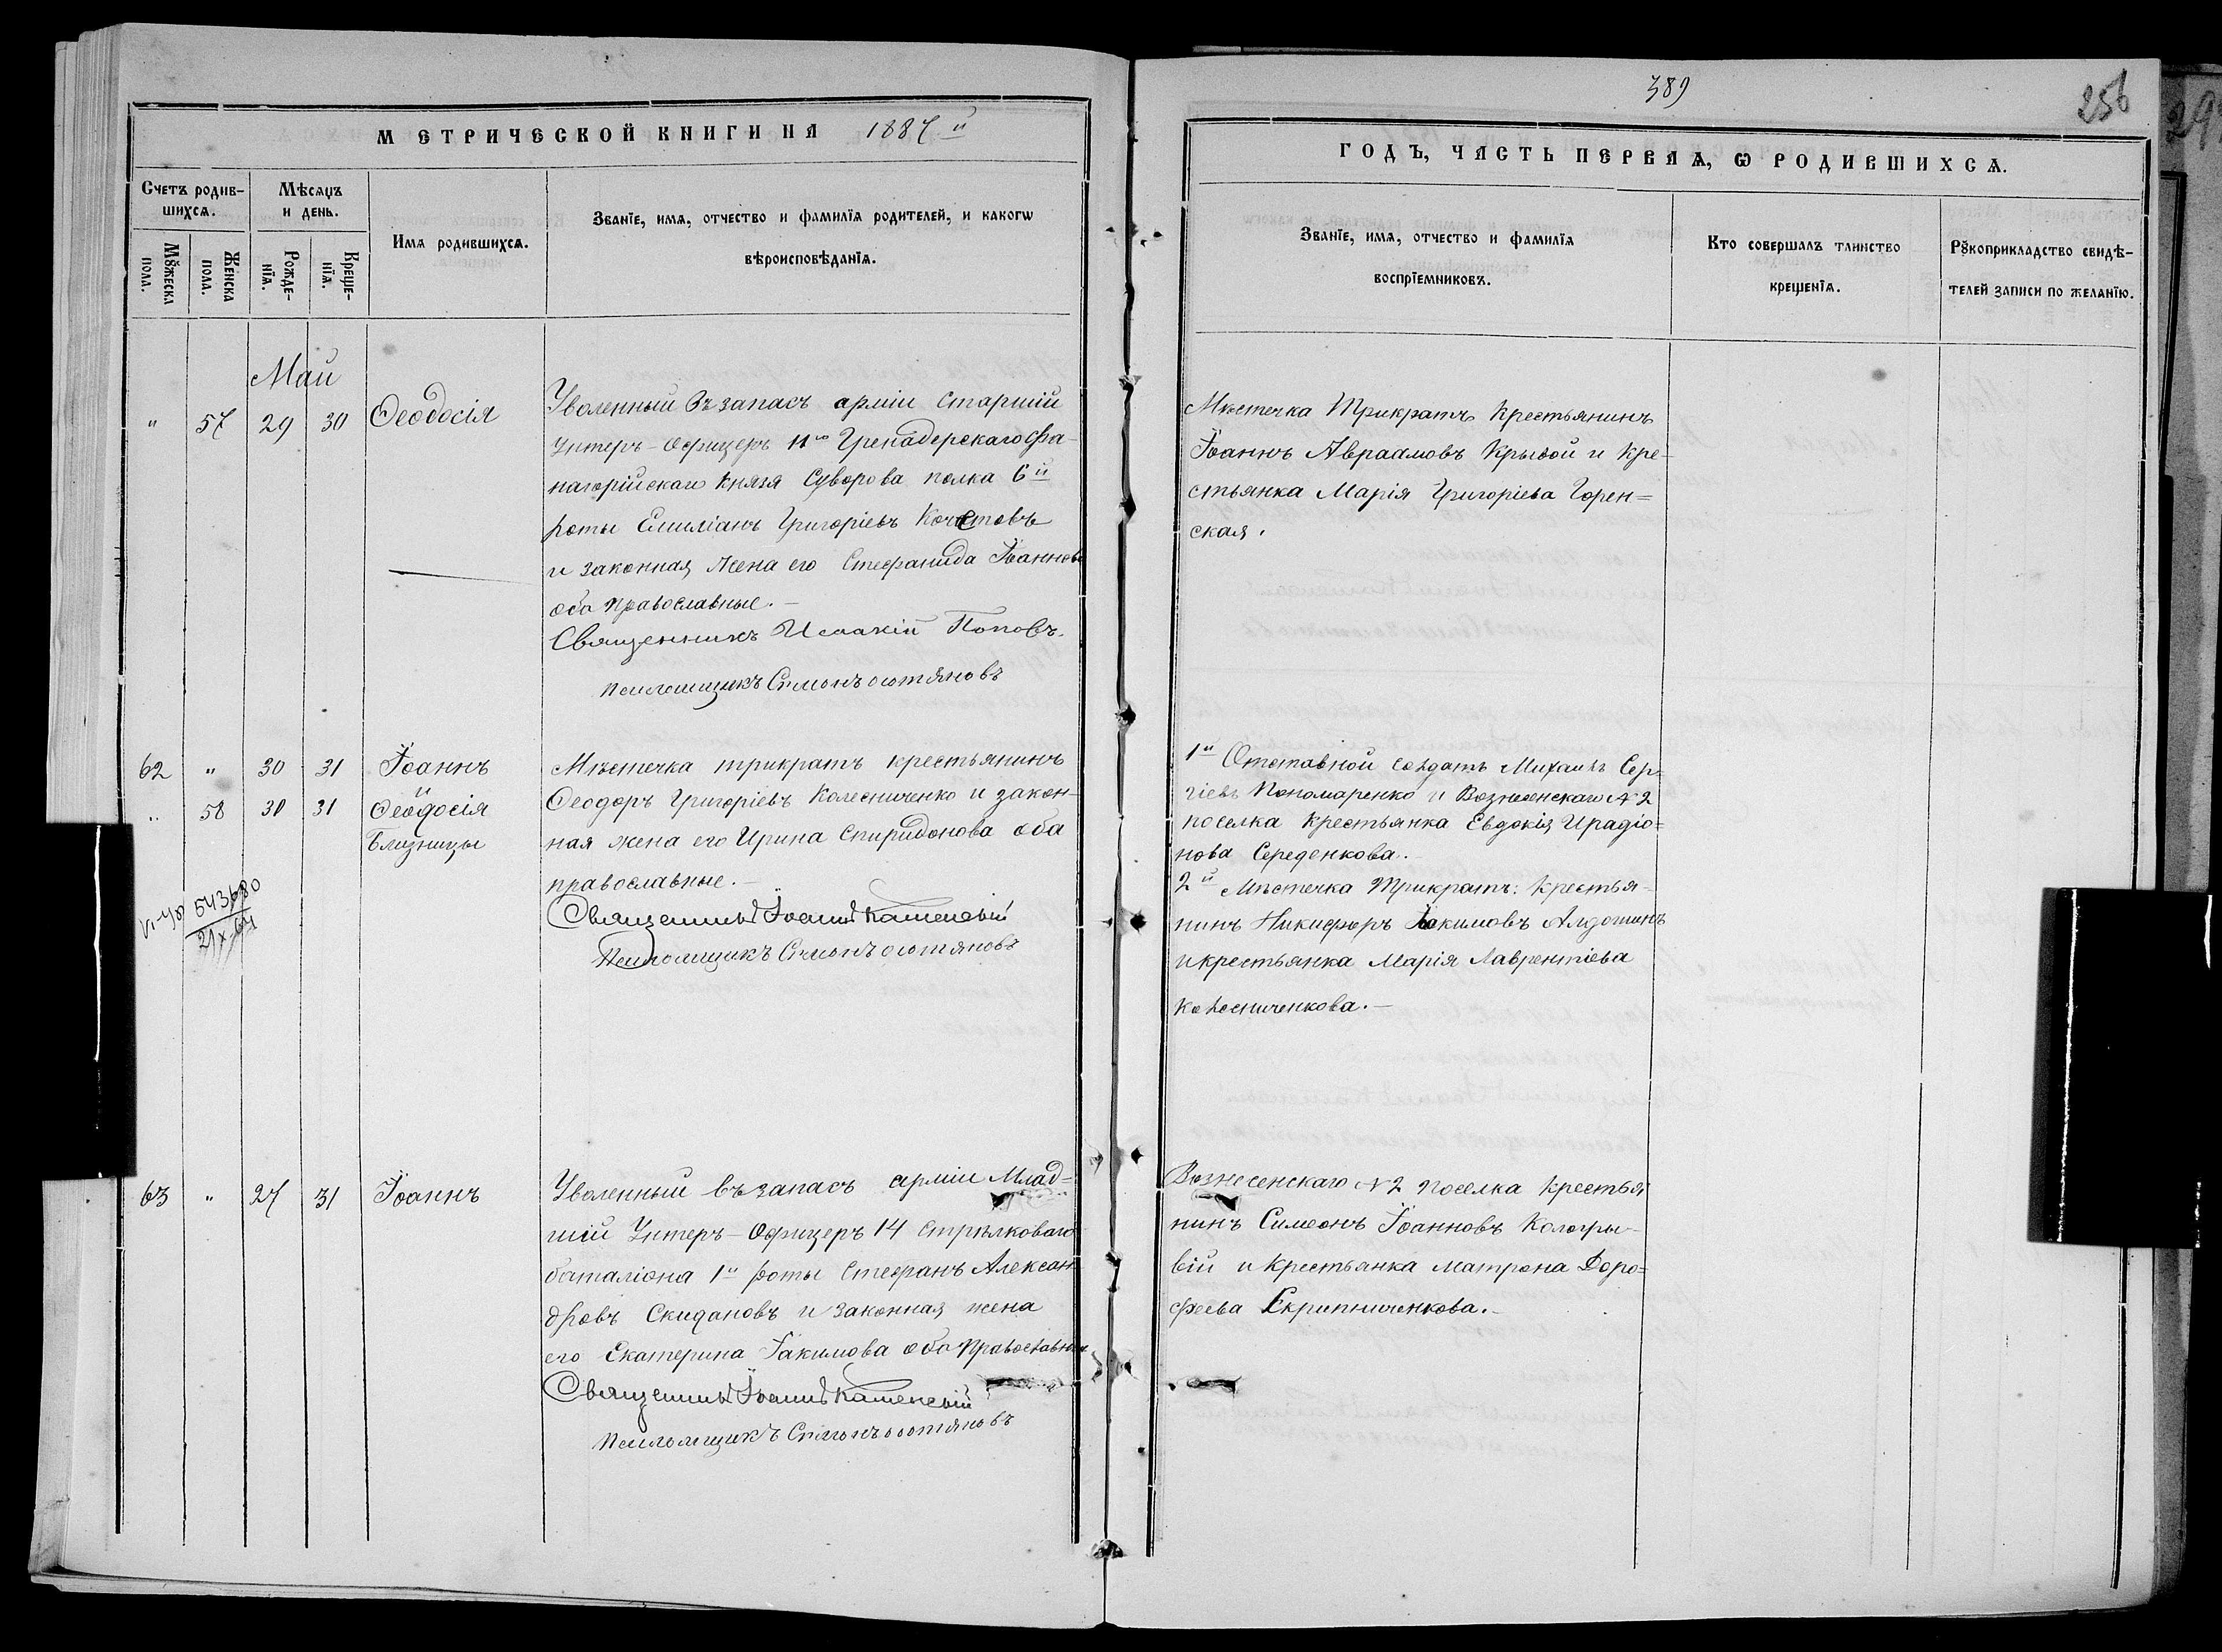 389
256
29
МЕТРИЧЕСКОЙ КНИГИ НА 1887 й
ГОДЪ, ЧАСТЬ ПЕРВАѦ, Ѡ РОДИВШИХСѦ.
Счетъ родив-
шихсѧ.
Мѣсѧцъ
и день.
Имѧ родившихсѧ.
Званїе, имѧ, отчество и фамилїѧ родителей, и какогѡ
вѣроисповѣданїѧ.
Мꙋжеска
пола.
Женска
пола.
Рожде-
нїѧ.
Креще-
нїѧ.
Званїе, имѧ, отчество и фамилїѧ
воспрїемниковъ.
Кто совершалъ таинство
крещенїѧ.
Рꙋкоприкладство свидѣ-
телей записи по желанїю.
Май
" 57 29 30 Ѳеодосія
Уволенный въ запасъ арміи старшій
унтеръ-офицеръ 11го Гренадерскаго Фа-
нагорійскаго Князя Суворова полка 6й
роты Емиліанъ Григоріевъ
и законная жена его Стефанида Іоаннова
оба православные.-
Священникъ Исаакій Поповъ.
Псаломщикъ
Мѣстечка Трикратъ крестьянинъ
Іоаннъ Авраамовъ Крывой и кре-
стьянка Марія Григоріева Горен=
ская.
62 " 30 31 Іоаннъ
" 58 30 31 и Ѳеодосія
Близницы
Мѣстечка трикратъ крестьянинъ
Ѳеодоръ Григоріевъ Колесниченко и закон-
ная жена его Ирина Спиридонова оба
православные.-
Священникъ Іоаннъ Каменскій
Псаломщикъ
543680
21 X 64
1й Отставной солдатъ Михаилъ Сер-
гіевъ Пономаренко и Вознесенскаго №2
поселка крестьянка Евдокія Ирадіо=
нова Середенкова.
2й Мѣстечка Трикратъ: крестья-
нинъ Никифоръ Іакимовъ Алдошинъ
и крестьянка Марія Лаврентіева
Колесниченкова.-
63 " 27 31 Іоаннъ
Уволенный въ запасъ арміи Млад=
шій Унтеръ-Офицеръ 14 стрѣлковаго
баталіона 1й роты Стефанъ Алексан-
дровъ Скидановъ и законная жена
его Екатерина Іакимова оба православные
Священникъ Іоаннъ Каменскій
Псаломщикъ
Вознесенскаго №2 поселка крестья
нинъ Симеонъ Іоанновъ Кологры-
вій и крестьянка Матрона Доро=
феева Скрипниченкова.-